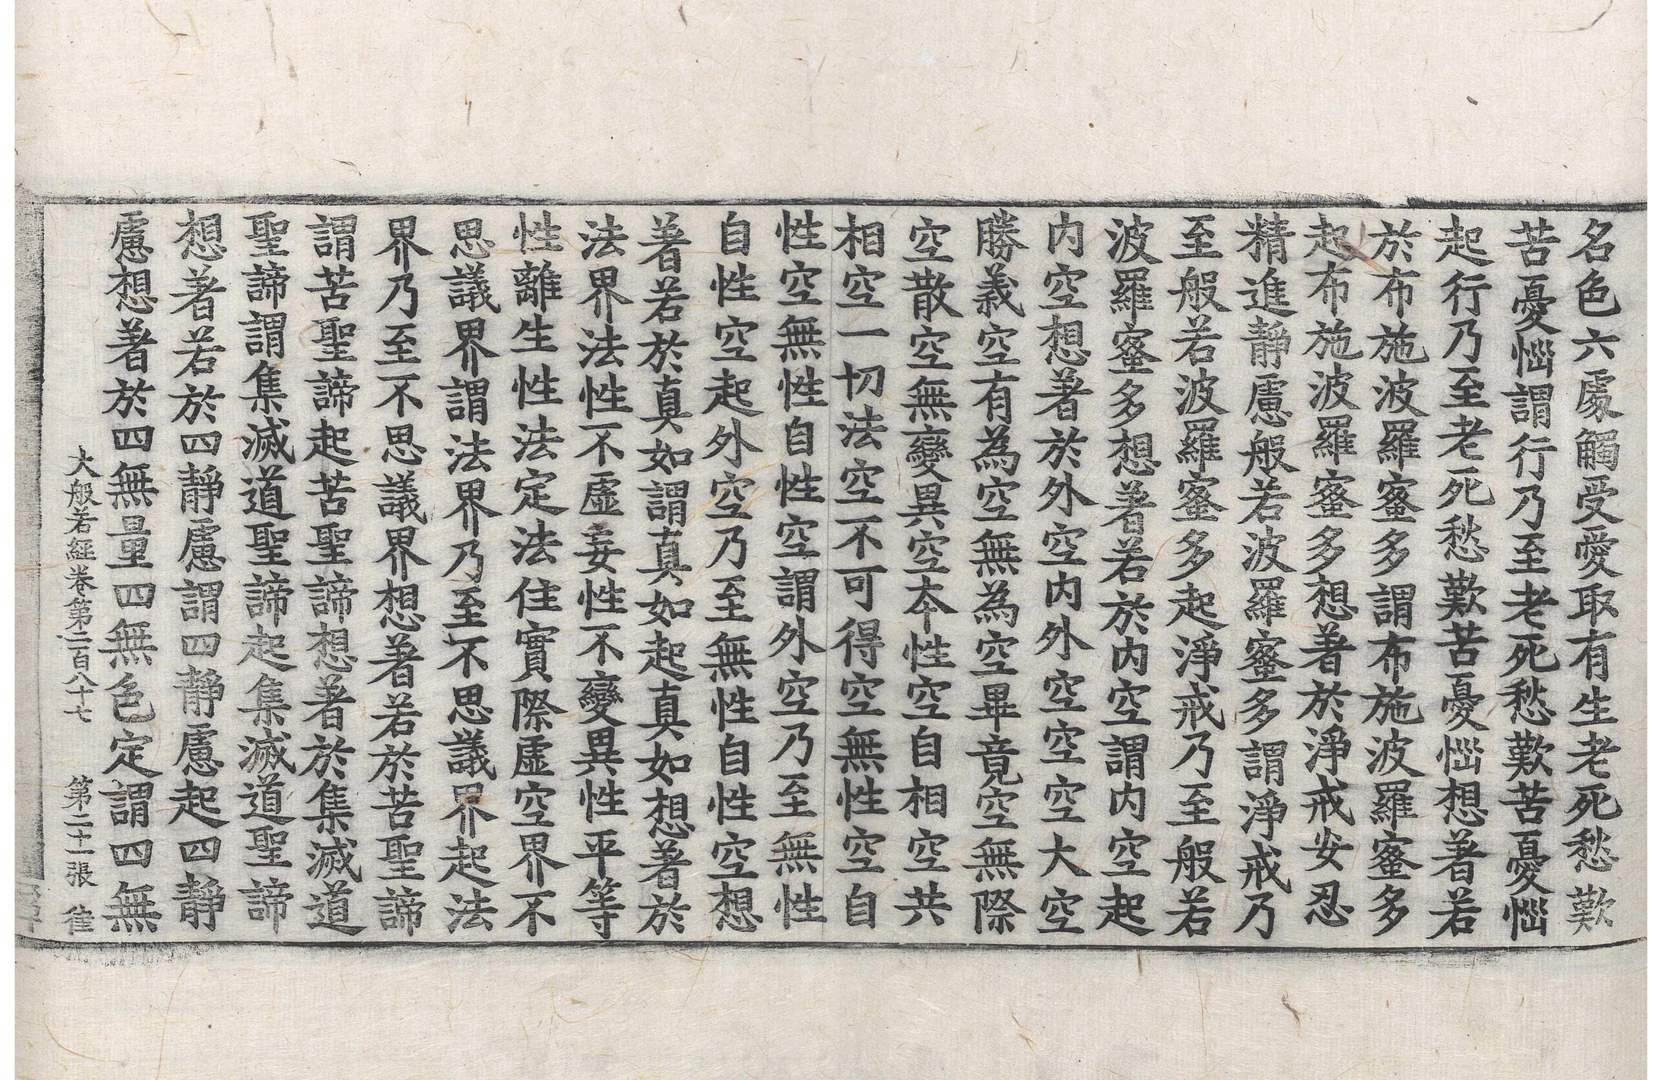 名色六處觸受愛取有生老死愁歎
苦憂惱謂行乃至老死愁歎苦憂惱
起行乃至老死愁歎苦憂惱想著若
於布施波羅蜜多謂布施波羅蜜多
起布施波羅蜜多想著於淨戒安忍
精進靜慮般若波羅蜜多謂淨戒乃
至般若波羅蜜多起淨戒乃至般若
波羅蜜多想著若於內空謂內空起
內空想著於外空內外空空空大空
勝義空有為空無為空畢竟空無際
空散空無變異空本性空自相空共
相空一切法空不可得空無性空自
性空無性自性空謂外空乃至無性
自性空起外空乃至無性自性空想
著若於真如謂真如起真如想著於
法界法性不虛妄性不變異性平等
性離生性法定法住實際虛空界不
思議界謂法界乃至不思議界起法
界乃至不思議界想著若於苦聖諦
謂苦聖諦起苦聖諦想著於集滅道
聖諦謂集滅道聖諦起集滅道聖諦
想著若於四靜慮謂四靜慮起四靜
慮想著於四無量四無色定謂四無
大般若經卷第二百八十七 第二十一張